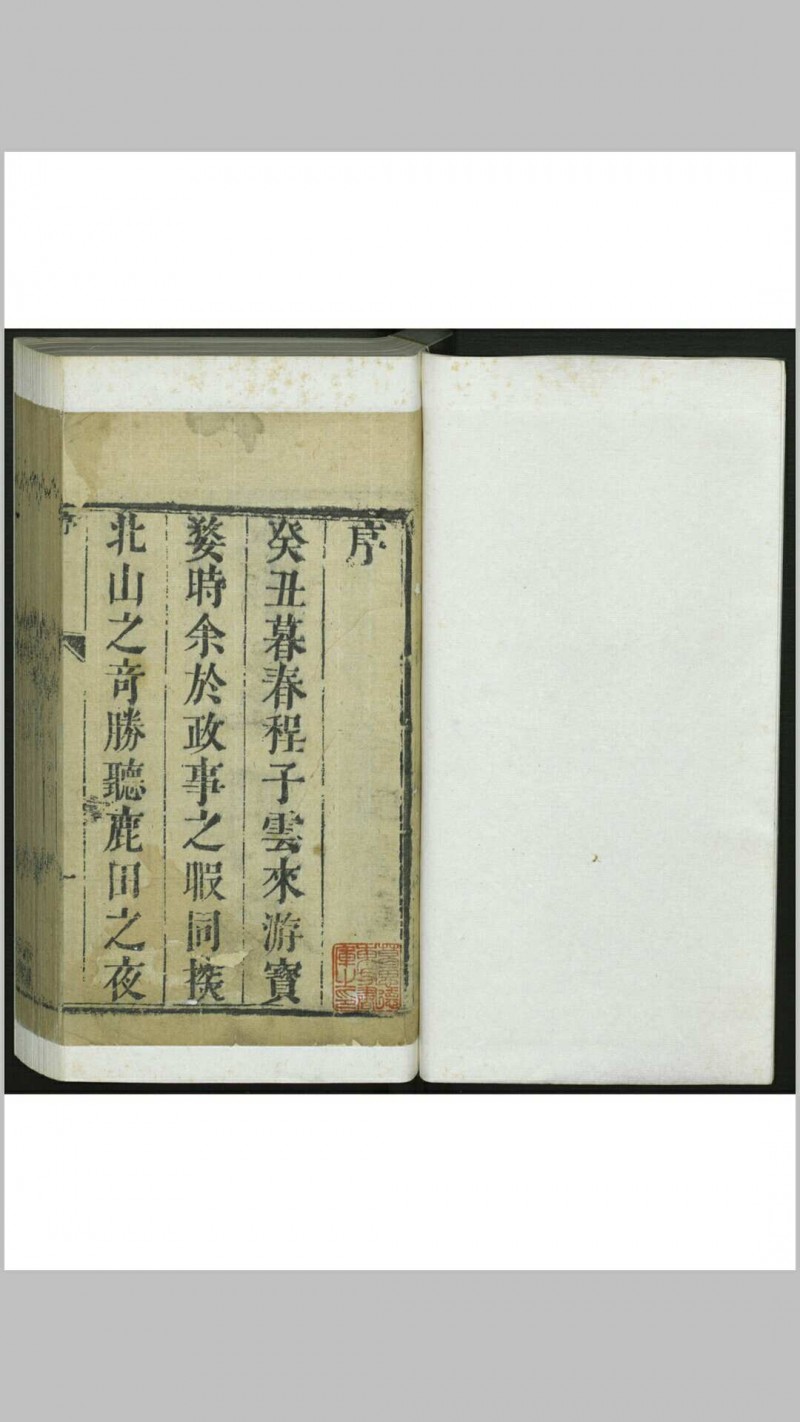 序
癸丑暮春程子雲來游寶
婺時余於政事之暇同探
北山之竒勝聽鹿田之夜
序
一